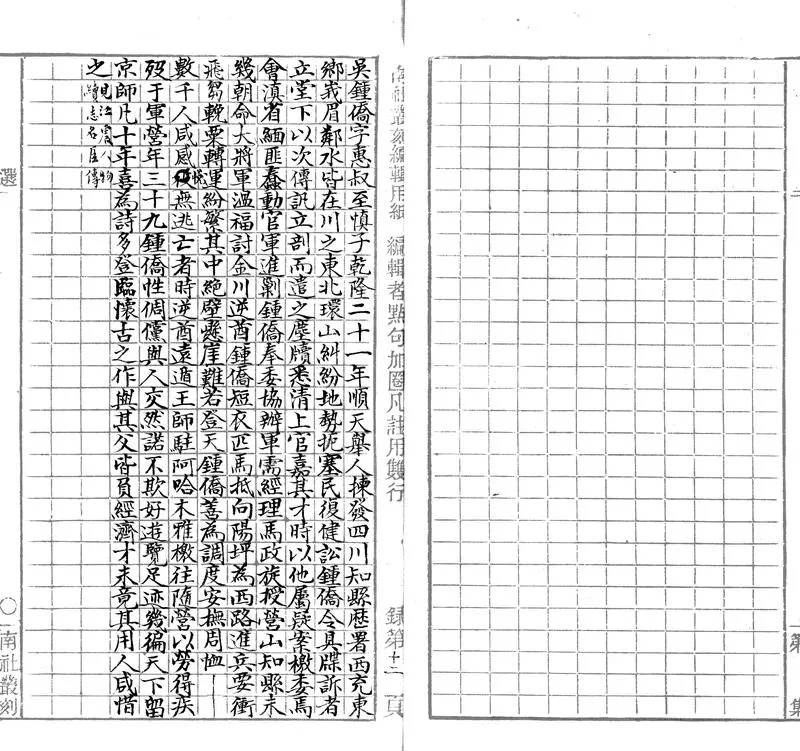 吳鍾僑字惠叔至慎子乾隆二十一年順天舉人揀發四川知縣歷署西充東
鄉峩眉鄰水皆在川之東北環山糾紛地勢扼塞民復健訟鍾僑令具牒訴者
立堂下以次傳訊立剖而遣之塵牘悉清上官嘉其才時以他屬疑案檄委焉
會滇省緬匪蠢動官軍進剿鍾僑奉委協辦軍需經理馬政旋授營山知縣未
幾朝命大將軍溫福討金川逆酋鍾僑短衣匹馬抵向陽坪為西路進兵要衝
飛芻輓粟轉運紛繁其中絕壁懸崖難若登天鍾僑善為調度安撫周恤
數千人咸感悅無逃亡者時逆酋遠遁王師駐阿哈木雅檄往隨營以勞得疾
歿于軍營年三十九鍾僑性倜儻與人交然諾不欺好遊覽足迹幾徧天下留
京師凡十年喜為詩多登臨懷古之作與其父皆負經濟才未竟其用人咸惜
之 見江震人物續志名臣傳
南社叢刻編輯用紙 編輯者點句加圈凡註用雙行
錄第十二頁
選
〇南社叢刻
第 集